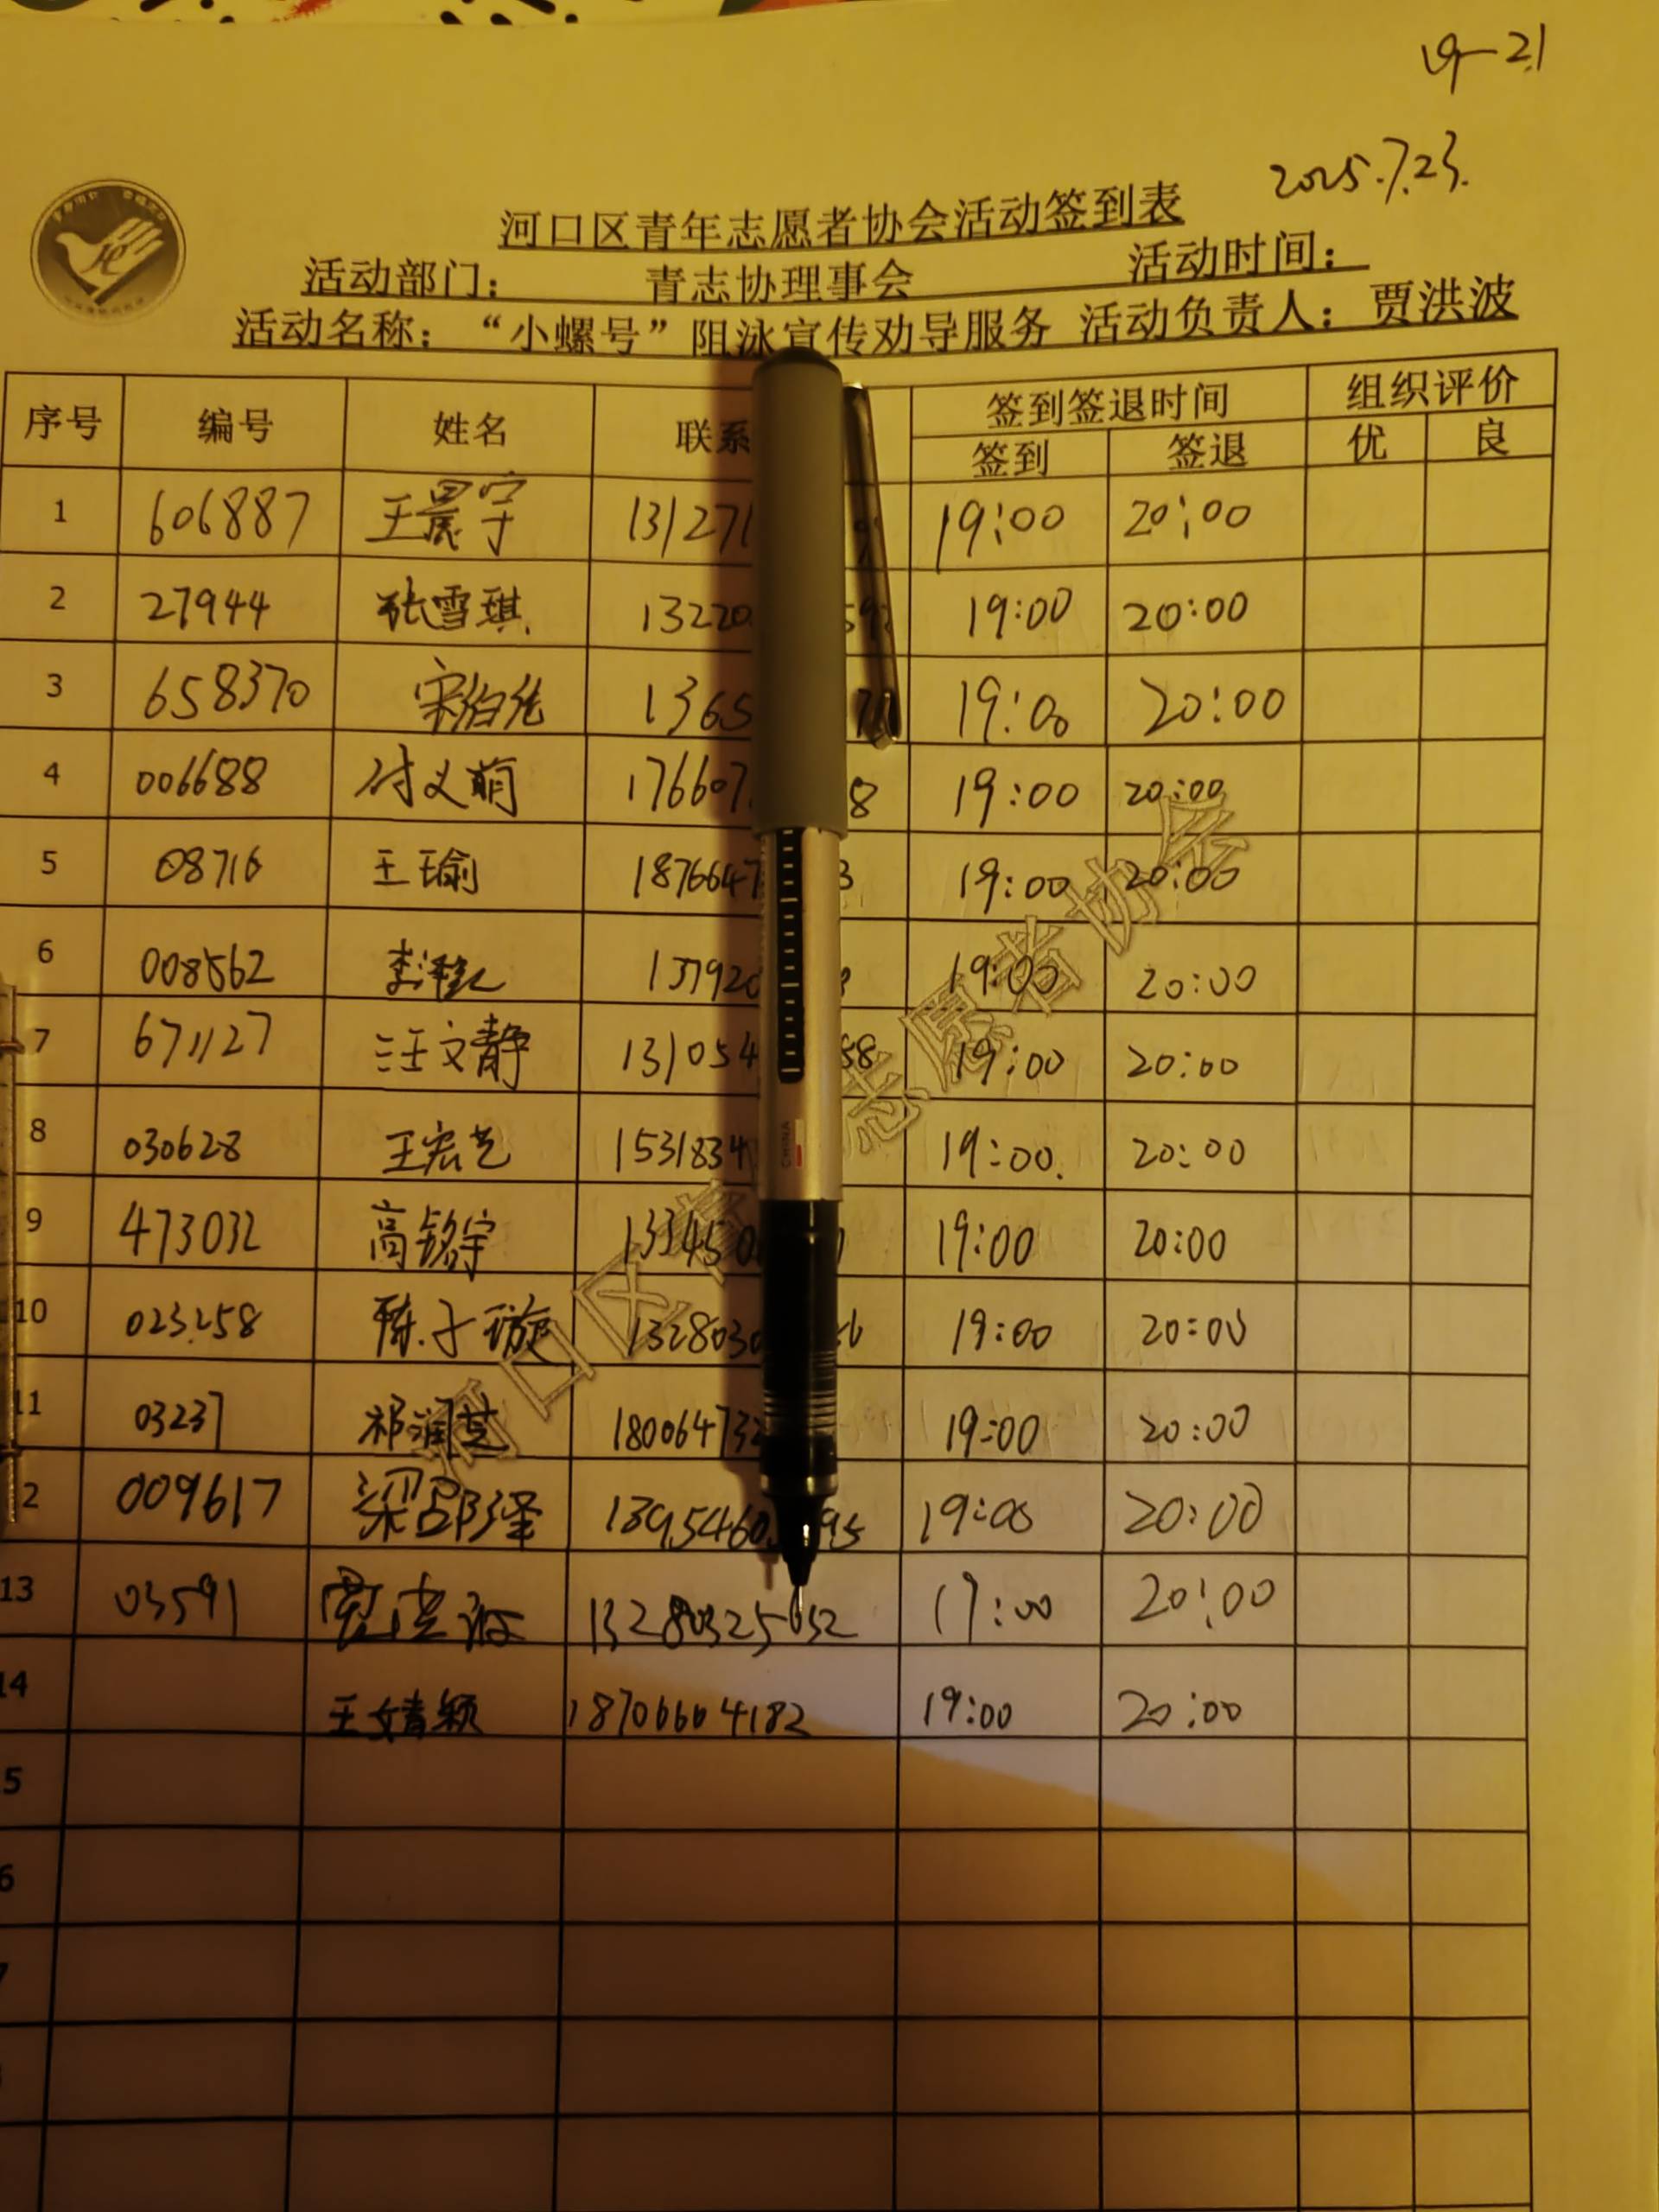 19-21
2025.7.23.
河口区青年志愿者协会活动签到表
活动部门： 青志协理事会 活动时间：
活动名称：“小螺号”阻泳宣传劝导服务 活动负责人：贾洪波
序号 编号 姓名 联系 签到签退时间 组织评价
签到 签退 优 良
1 606887 王晨宇 131271 19:00 20:00
2 27944 张雪琪 13220 59 19:00 20:00
3 658370 1365 19:00 20:00
4 006688 付义萌 176607 8 19:00 20:00
5 08716 王瑜 1876647 3 19:00 20:00
6 008562 137920 19:00 20:00
7 671127 汪文静 131054 58 19:00 20:00
8 030628 王宏艺 1531834 19:00 20:00
9 473032 高铭宇 133450 19:00 20:00
10 023258 陈子璇 1328030 6 19:00 20:00
11 03237 祁润芝 18006473 19:00 20:00
2 009617 梁邵泽 1395460 95 19:00 20:00
13 03591 贾洪波 13280325652 19:00 20:00
14 王婧颖 18706604182 19:00 20:00
5
6
7
河口区青年志愿者协会
CHINA